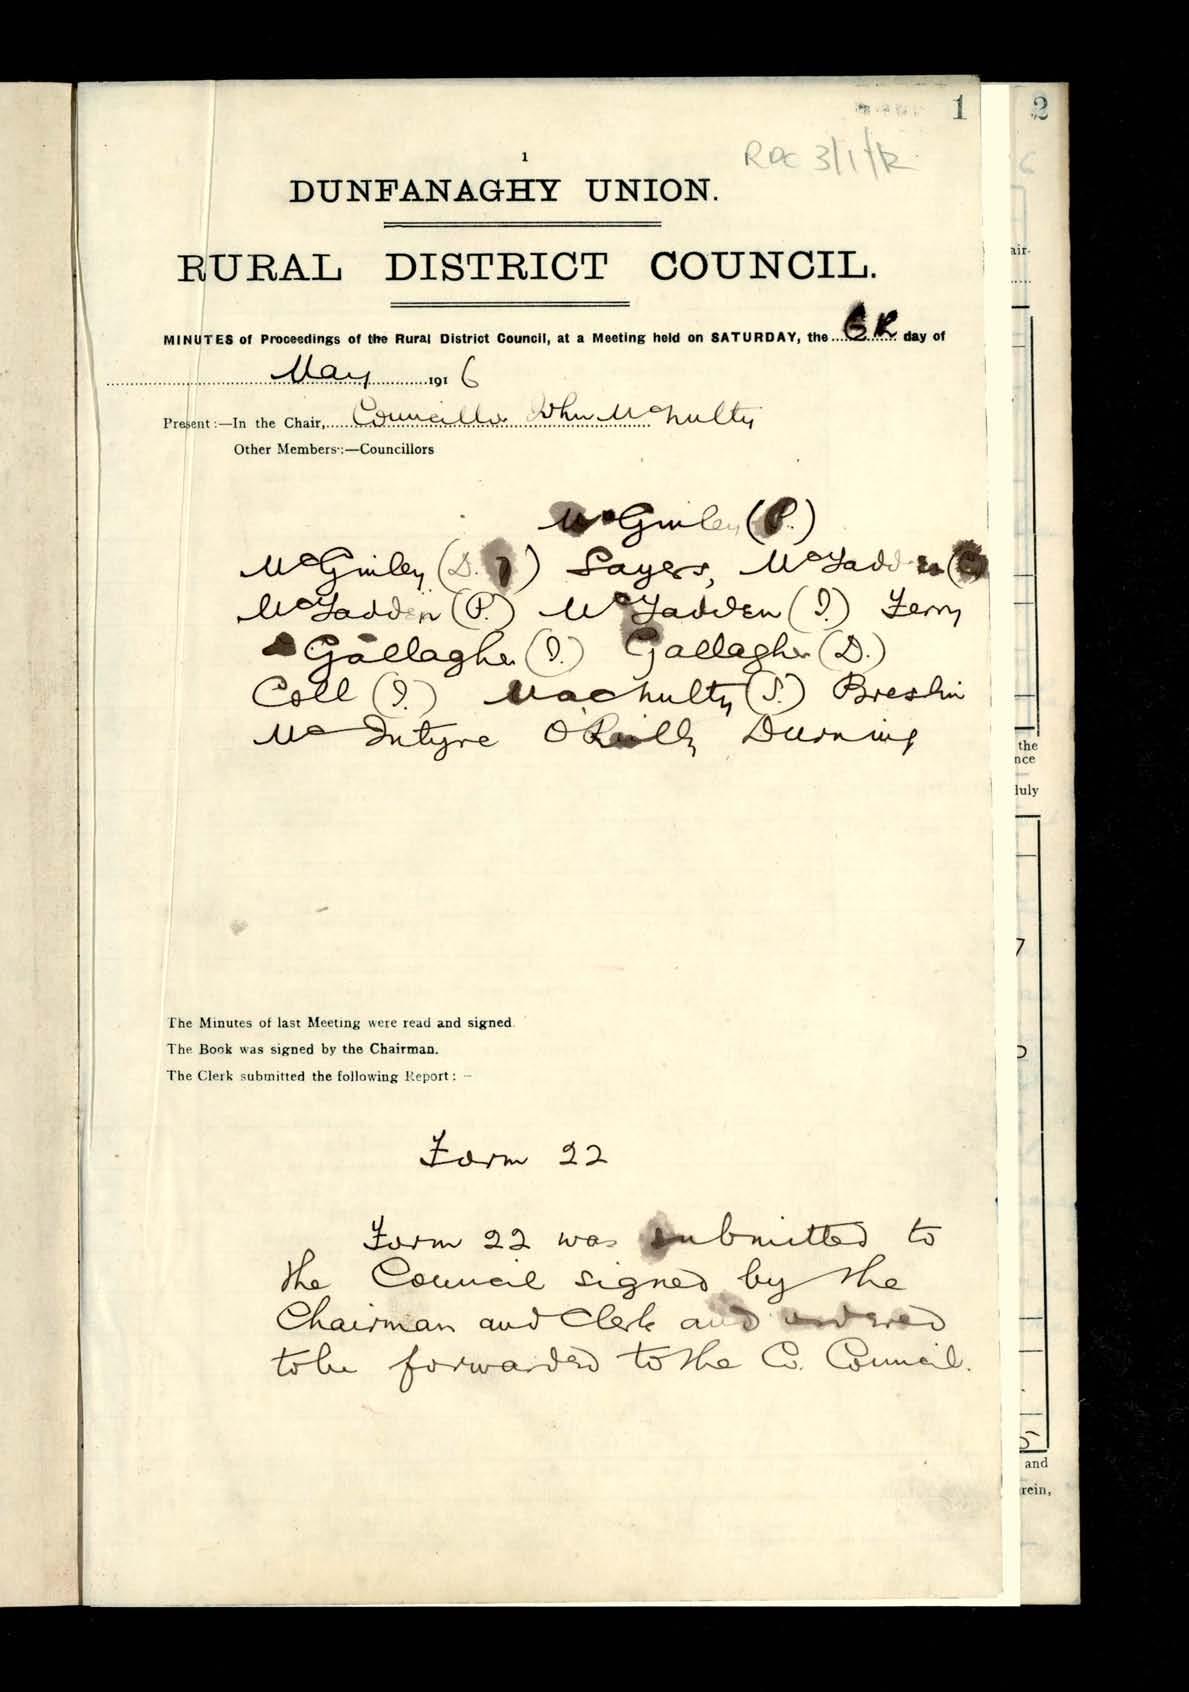 1
2
RDC 3/1/12
1
DUNFANAGHY UNION.
RURAL DISTRICT COUNCIL.
MINUTES of Proceedings of the Rural District Council, at a Meeting held on SATURDAY, the 6th day of
May 1916
Present:—In the Chair, Councillor John McNulty
Other Members:—Councillors
McGinley (P.)
McGinley (D. ) Sayers, McFadden (C)
McFadden (P.) McFadden (J.) Ferry
Gallagher (J.) Gallagher (D.)
Coll (J.) MacNulty (J.) Breslin
McIntyre O'Reilly Durning
The Minutes of last Meeting were read and signed.
The Book was signed by the Chairman.
The Clerk submitted the following Report: —
Form 22
Form 22 was submitted to
the Council signed by the
Chairman and Clerk and ordered
to be forwarded to the Co. Council.
air-
the
nce
duly
7
5
and
rein,